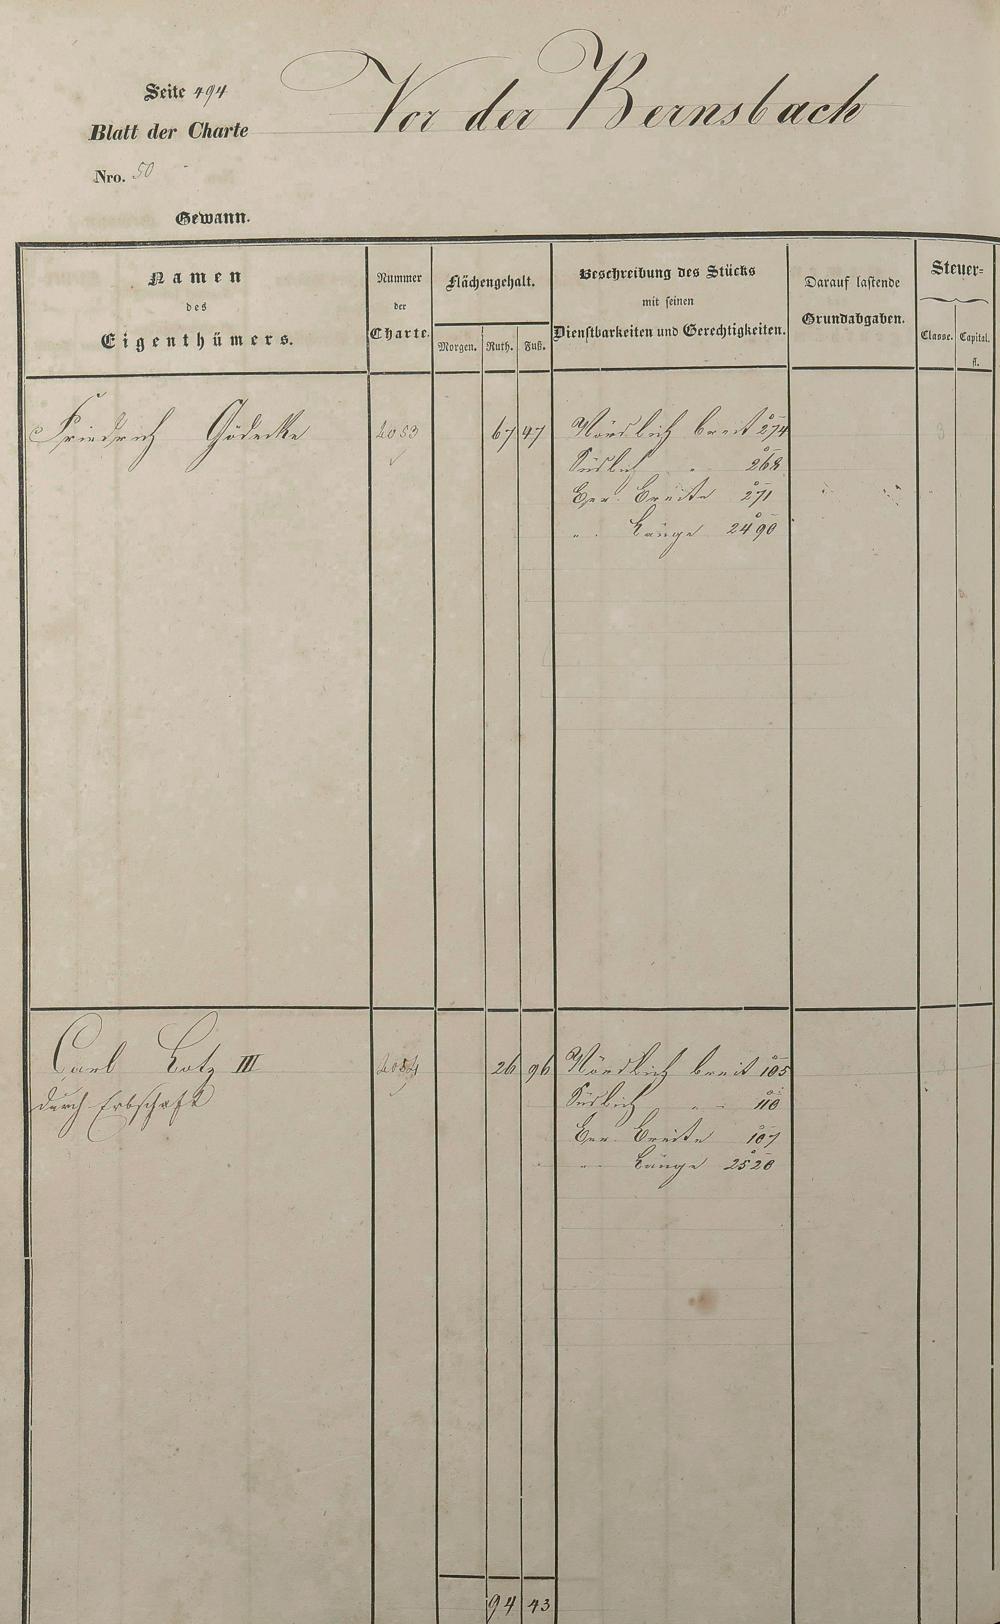 Vor der Bernsbach
Seite 494
Blatt der Charte
Nro. 50
Gewann.
Namen des Eigenthümers.
Nummer der Charte.
Flächengehalt.
Morgen. Ruth. Fuß.
Beschreibung des Stücks
mit seinen
Dienstbarkeiten und Gerechtigkeiten.
Darauf lastende
Grundabgaben.
Steuer=
Classe. Capital.
fl.
Friedrich Gödecke 4053 67 47 Nördlich breit 274 3
Südlich " 268
Ger. Breite 271
" Länge 2490
Carl Lotz III 4054 26 96 Nördlich breit 105 3
durch Erbschaft Südlich " 110
Ger. Breite 107
" Länge 2520
94 43